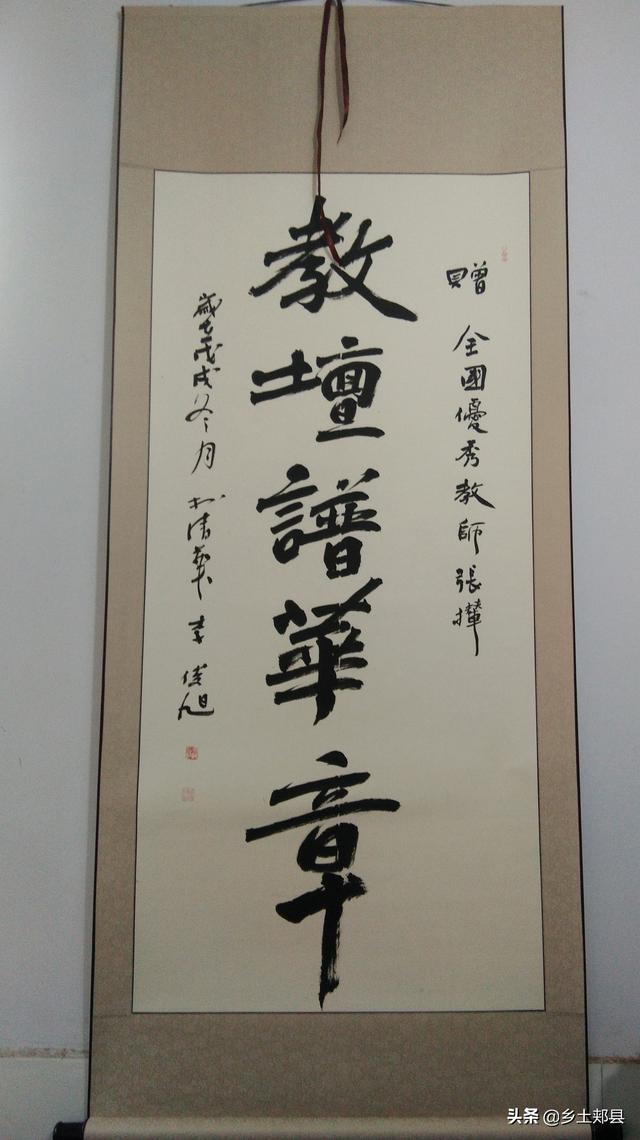 贈 全國優秀教師張攆
教壇譜華章
歲在戊戌冬月 李俊旭
头条 @乡土郏县